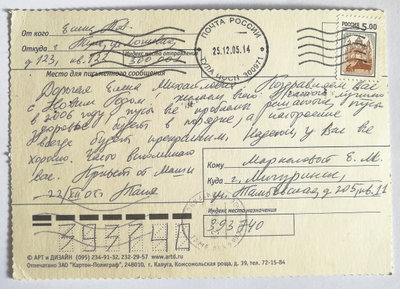 От кого Елина
Откуда г.
д 123, кв. 132 300
Индекс места отправления
ПОЧТА РОССИИ
25.12.05.14
300971
РОССИЯ 5.00
Место для письменного сообщения
Дорогая Елена Михайловна! Поздравляем Вас
с Новым Годом! Желаем всего самого лучшего
в 2006 году, пусть все проблемы решатся, пусть
здоровье будет в порядке, а настроение
всегда будет прекрасным. Надеюсь, у вас все
хорошо. Часто вспоминаю
вас. Привет от Маши
22/XII 05г Таня
Кому Е. М.
Куда г. Мичуринск,
ул. д 205, кв. 11
Индекс места назначения
393740
393740
© АРТ и ДИЗАЙН (095) 234-91-32, 232-29-57 www.artd.ru
Отпечатано ЗАО "Картон-Полиграф", 248010, г. Калуга, Комсомольская роща, д. 39, тел. 72-15-84